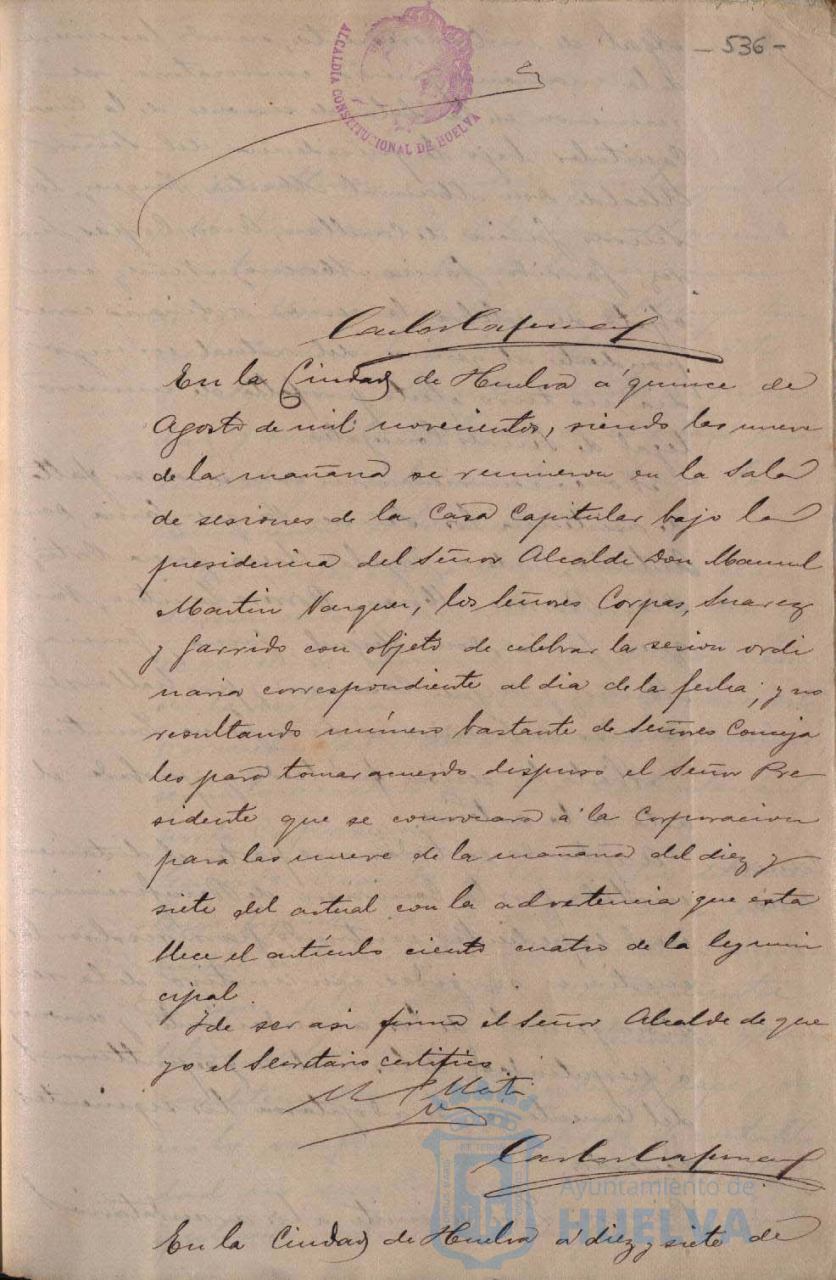 - 536 -
ALCALDIA CONSTITUCIONAL DE HUELVA
En la Ciudad de Huelva á quince de
Agosto de mil novecientos, siendo las nueve
de la mañana se reunieron en la Sala
de sesiones de la Casa Capitular bajo la
presidencia del Señor Alcalde Don Manuel
Martin Vazquez, los Señores Corpas, Suarez
y Garrido con objeto de celebrar la sesion ordi
naria correspondiente al dia de la fecha; y no
resultando número bastante de Señores Conceja
les para tomar acuerdo dispuso el Señor Pre
sidente que se convocara á la Corporacion
para las nueve de la mañana del diez y
siete del actual con la advertencia que esta
blece el artículo ciento cuatro de la ley muni
cipal.
Y de ser asi firma el Señor Alcalde de que
yo el Secretario certifico.
M Mart
Ayuntamiento de
HUELVA
En la Ciudad de Huelva á diez y siete de